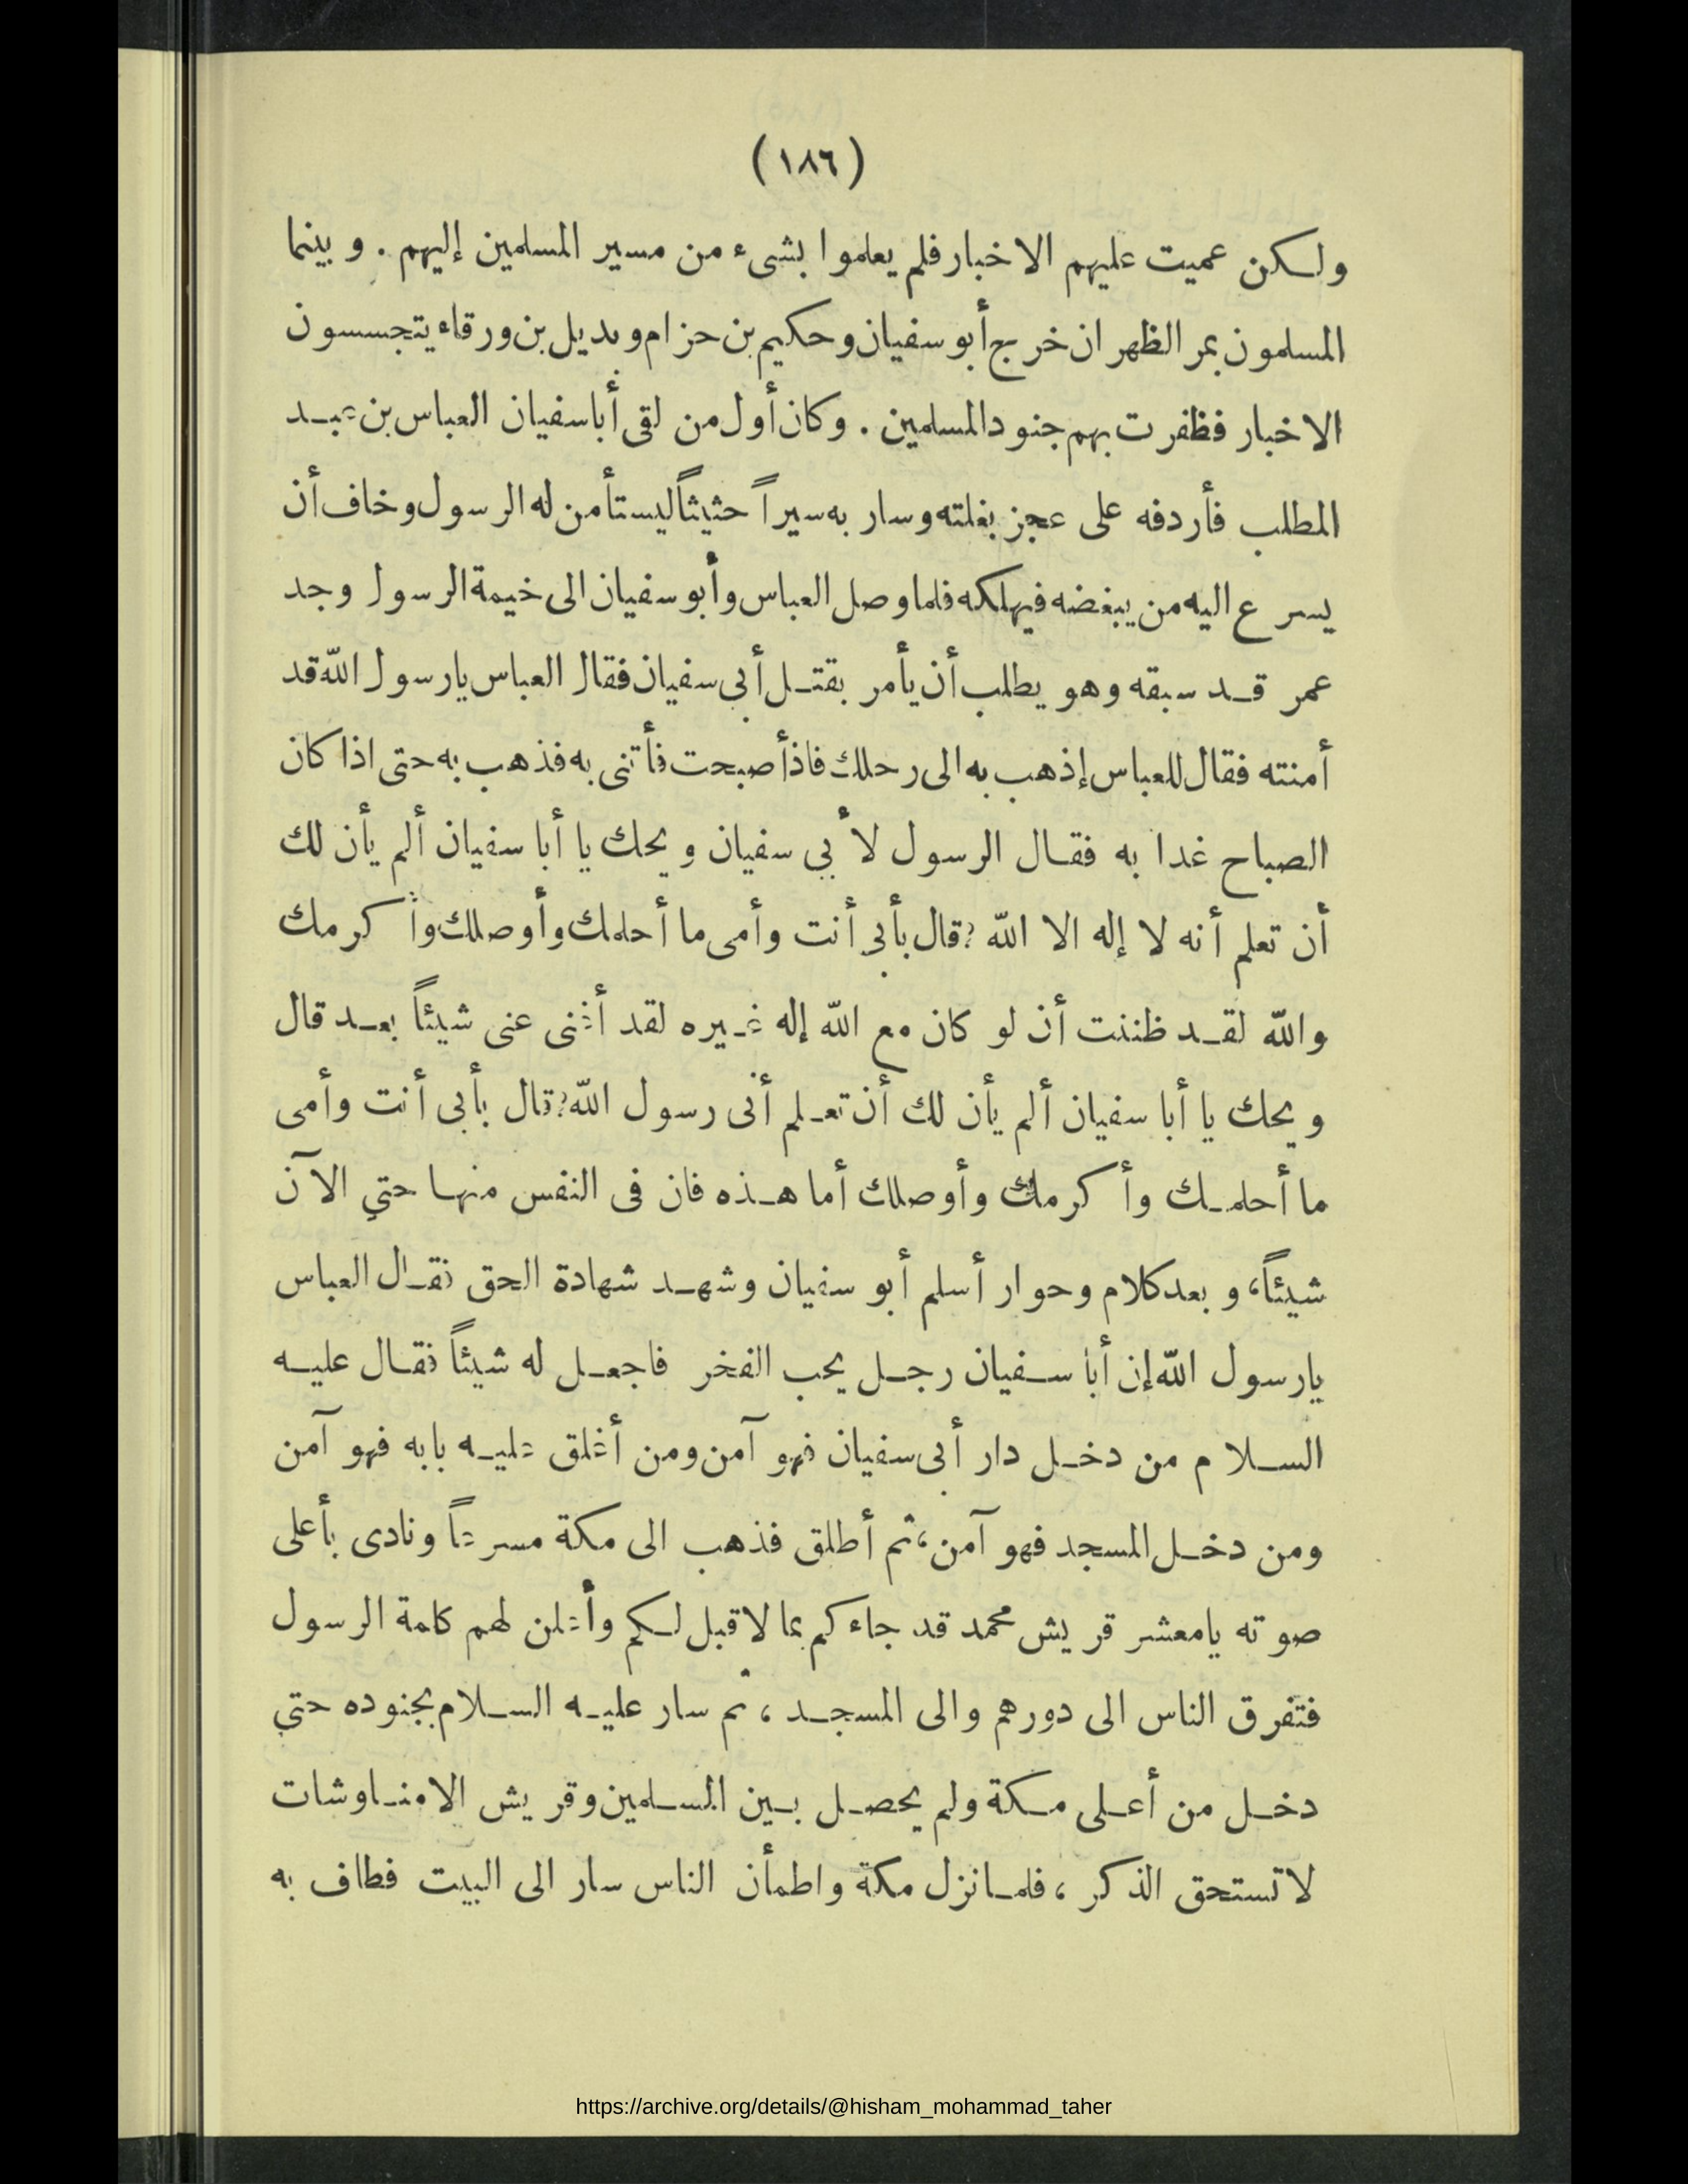 (١٨٦)
ولكن عميت عليهم الاخبار فلم يعلموا بشىء من مسير المسلمين إليهم . وبينما
المسلمون بمر الظهران خرج أبو سفيان وحكيم بن حزام وبديل بن ورقاء يتجسسون
الاخبار فظفرت بهم جنود المسلمين . وكان أول من لقى أبا سفيان العباس بن عبد
المطلب فأردفه على عجز بغلته وسار به سيراً حثيثاً ليستأمن له الرسول وخاف أن
يسرع اليه من يبغضه فيهلكه فلما وصل العباس وأبو سفيان الى خيمة الرسول وجد
عمر قد سبقه وهو يطلب أن يأمر بقتل أبى سفيان فقال العباس يارسول الله قد
أمنته فقال للعباس إذهب به الى رحلك فاذأصبحت فأتنى به فذهب به حتى اذا كان
الصباح غدا به فقال الرسول لأبي سفيان ويحك يا أبا سفيان ألم يأن لك
أن تعلم أنه لا إله الا الله ؟ قال بأبي أنت وأمى ما أحلمك وأوصلك وأكرمك
والله لقد ظننت أن لو كان مع الله إله غيره لقد أغنى عنى شيئاً بعد قال
ويحك يا أبا سفيان ألم يأن لك أن تعلم أنى رسول الله؟ قال بأبى أنت وأمى
ما أحلمك وأكرمك وأوصلك أما هذه فان فى النفس منها حتي الآن
شيئاً، وبعد كلام وحوار أسلم أبو سفيان وشهد شهادة الحق فقال العباس
يارسول الله إن أبا سفيان رجل يحب الفخر فاجعل له شيئاً فقال عليه
السلام من دخل دار أبى سفيان فهو آمن ومن أغلق عليه بابه فهو آمن
ومن دخل المسجد فهو آمن، ثم أطلق فذهب الى مكة مسرعاً ونادى بأعلى
صوته يامعشر قريش محمد قد جاءكم بما لا قبل لكم وأعلن لهم كلمة الرسول
فتفرق الناس الى دورهم والى المسجد ، ثم سار عليه السلام بجنوده حتي
دخل من أعلى مكة ولم يحصل بين المسلمين وقريش الا مناوشات
لا تستحق الذكر ، فلما نزل مكة واطمأن الناس سار الى البيت فطاف به
https://archive.org/details/@hisham_mohammad_taher